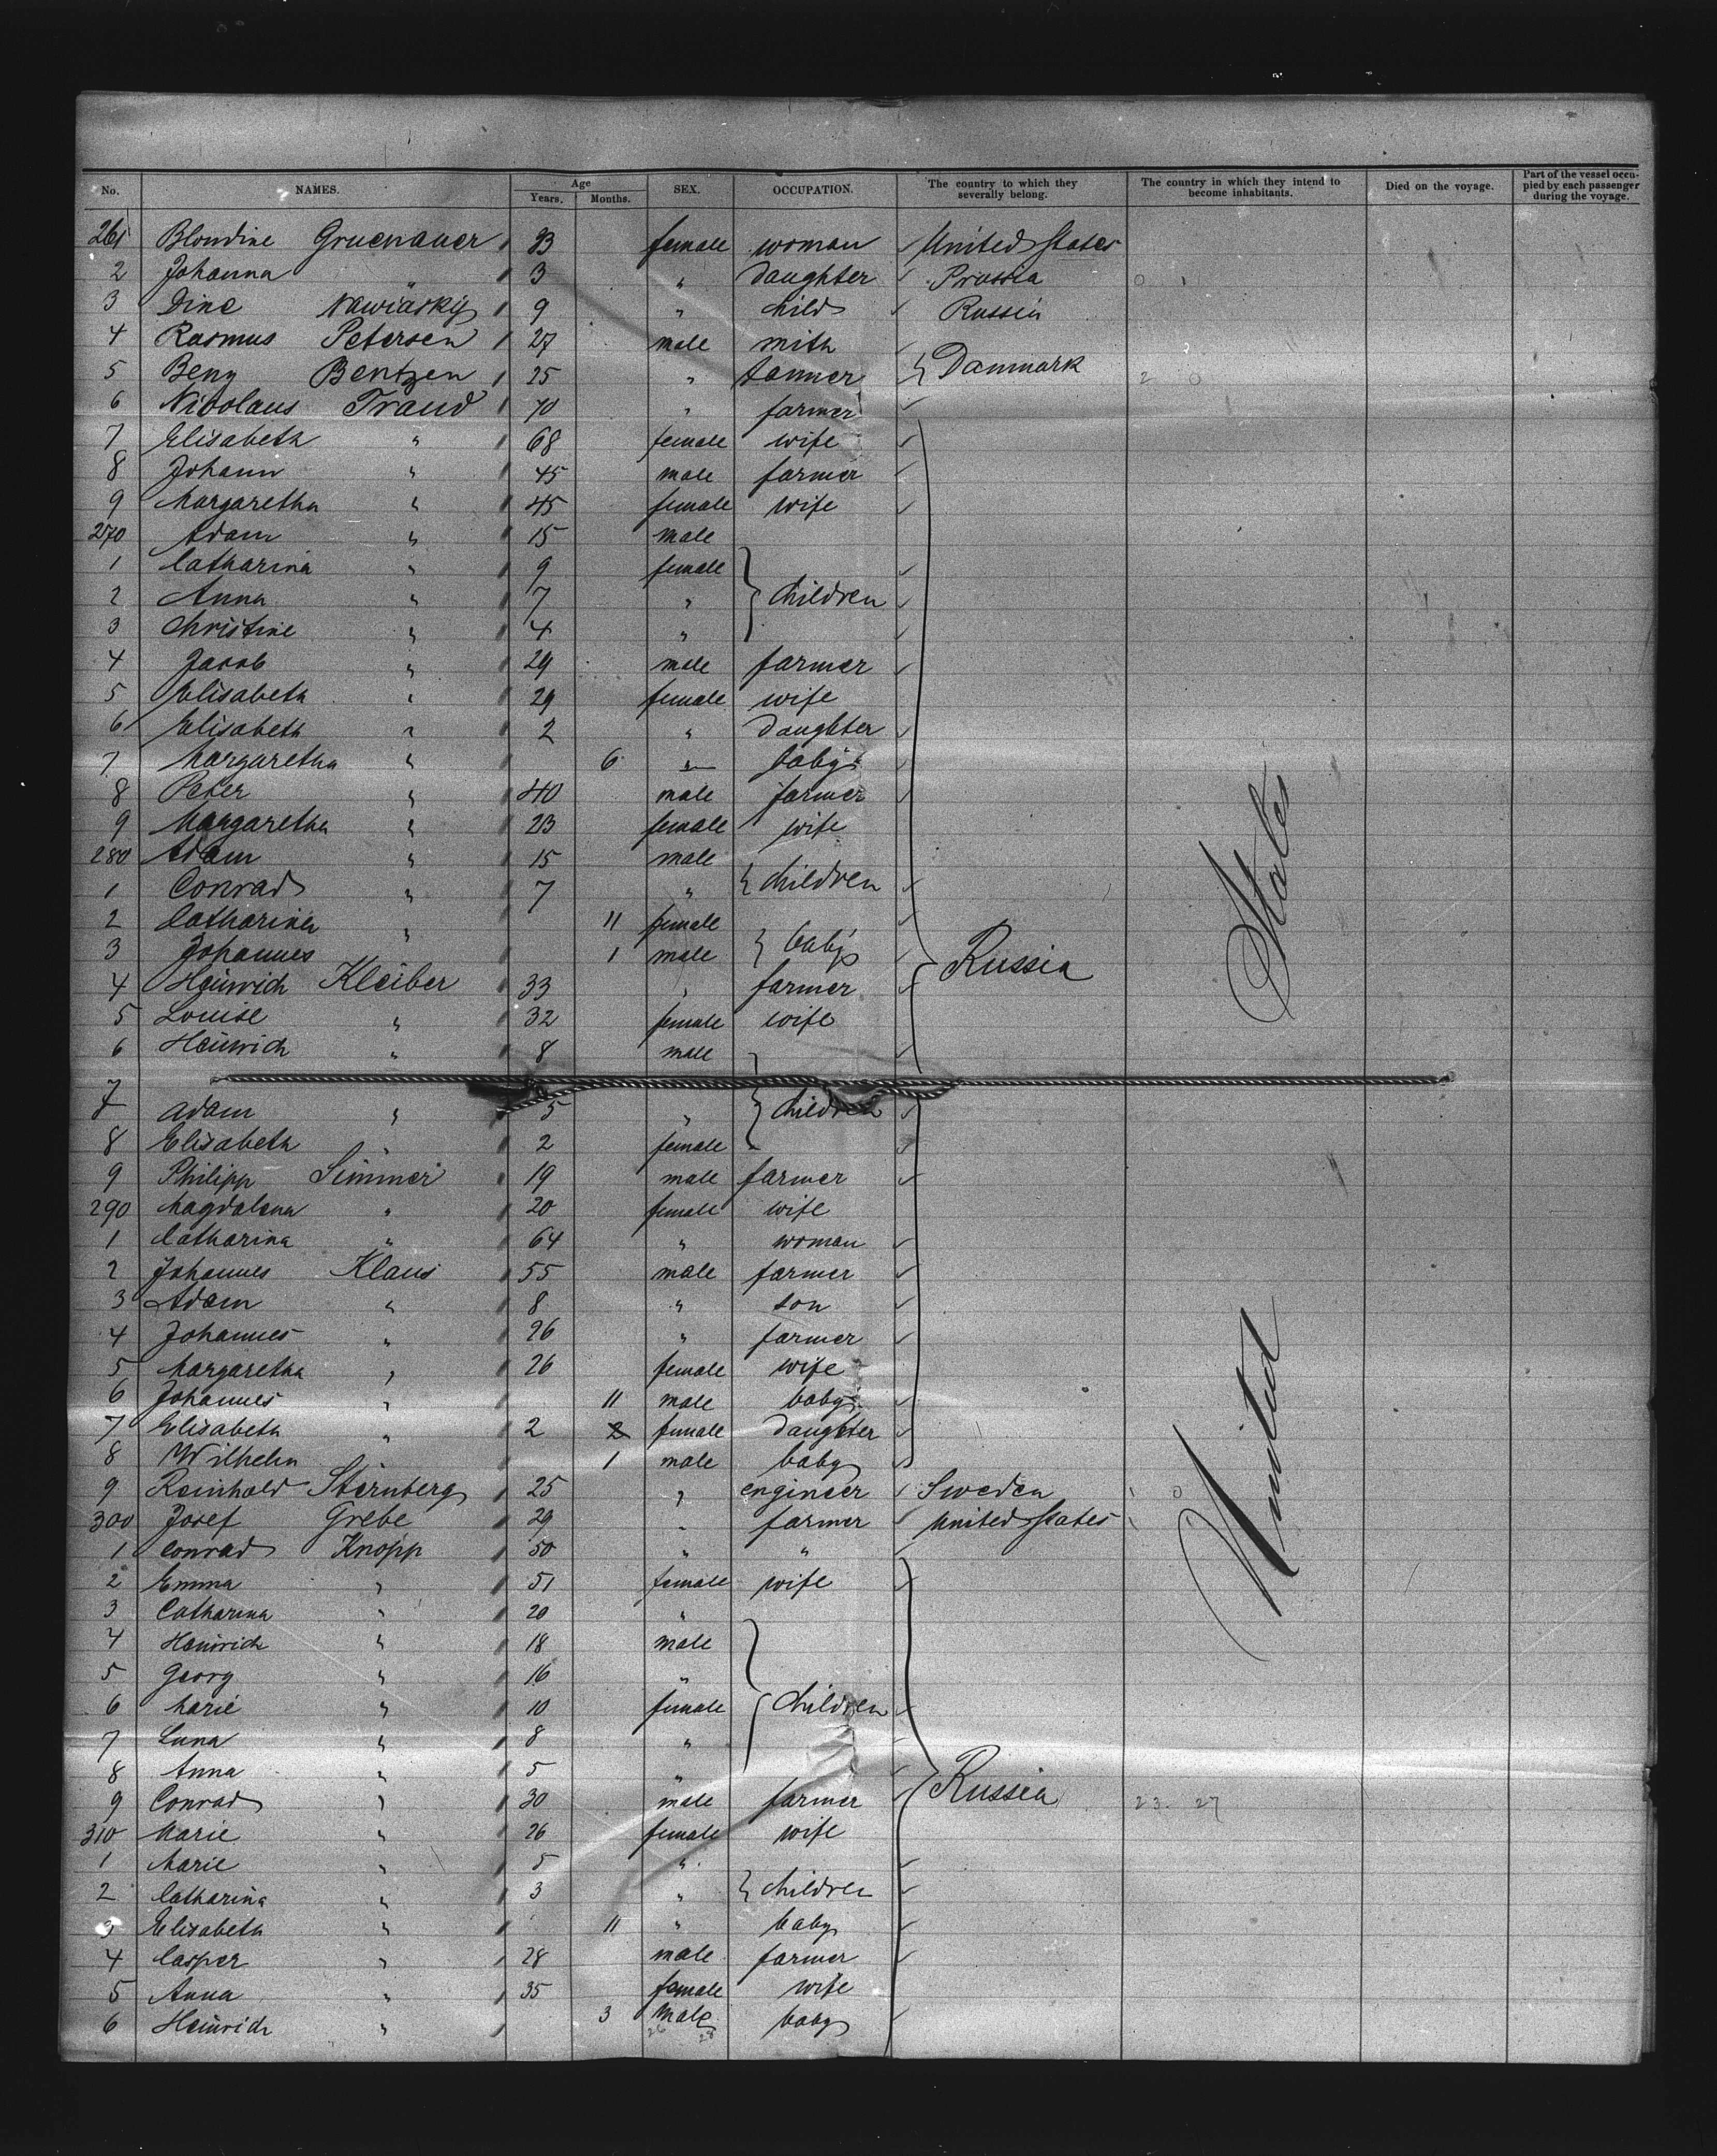 No. NAMES. Age Years. Months. SEX. OCCUPATION. The country to which they severally belong. The country in which they intend to become inhabitants. Died on the voyage. Part of the vessel occupied by each passenger during the voyage.
261 Blondine Gruenauer female woman United States
2 Johanna " 3 " daughter Prussia 0 1
3 Dine Nawiasky 9 " child Russia
4 Rasmus Petersen 27 male mith
5 Beny Bentzen 25 " tanner } Danmark 2 0
6 Nicolaus Traud 70 " farmer
7 Elisabeth " 68 female wife
8 Johann " 45 male farmer
9 Margaretha " 45 female wife
270 Adam " 15 male
1 Catharina " 9 female
2 Anna " 7 " } children
3 Christine " 4 "
4 Jacob " 29 male farmer
5 Elisabeth " 29 female wife
6 Elisabeth " 2 " daughter
7 Margaretha " 6 " baby
8 Peter " 40 male farmer
9 Margaretha " 23 female wife
280 Adam " 15 male
1 Conrad " 7 " } children
2 Catharina " 11 female
3 Johannes 1 male } baby } Russia
4 Heinrich Kleiber 33 " farmer
5 Louise " 32 female wife
6 Heinrich " 8 male
7 Adam " 5 " } children
8 Elisabeth " 2 female
9 Philipp Simmer 19 male farmer
290 Magdalena " 20 female wife
1 Catharina " 64 " woman
2 Johannes Klaus 55 male farmer
3 Adam " 8 " son
4 Johannes " 26 " farmer
5 Margaretha " 26 female wife
6 Johannes " 11 male baby
7 Elisabeth " 2 2 female daughter
8 Wilhelm " 1 male baby
9 Reinhold Sternberg 25 " engineer Sweden 1 0
300 Josef Grebe 29 " farmer United States 1
1 Conrad Knopp 50 " "
2 Emma " 51 female wife
3 Catharina " 20 "
4 Heinrich " 18 male
5 Georg " 16 "
6 Marie " 10 female } children
7 Luna " 8 "
8 Anna " 5 " } Russia
9 Conrad " 30 male farmer 23 27
310 Marie " 26 female wife
1 Marie " 5 "
2 Catharina " 3 " } children
3 Elisabeth " 11 " baby
4 Casper " 28 male farmer
5 Anna " 35 female wife
6 Heinrich " 3 male baby
26 28
United States